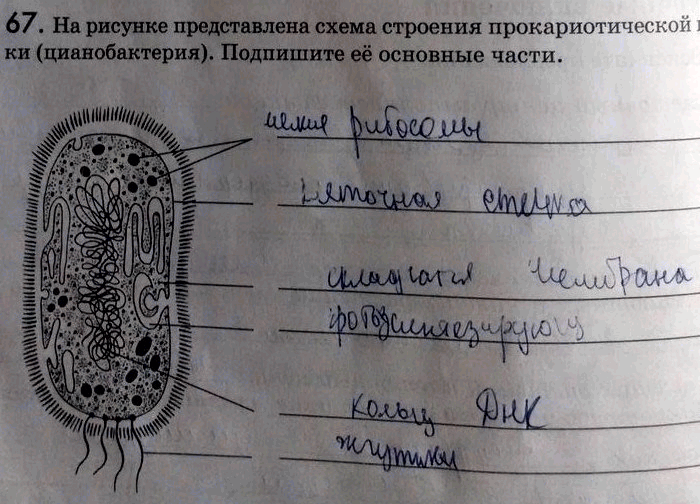 67. На рисунке представлена схема строения прокариотической
ки (цианобактерия). Подпишите её основные части.
рибосомы
клеточная стенка
складчатая мембрана
кольц ДНК
жгутики